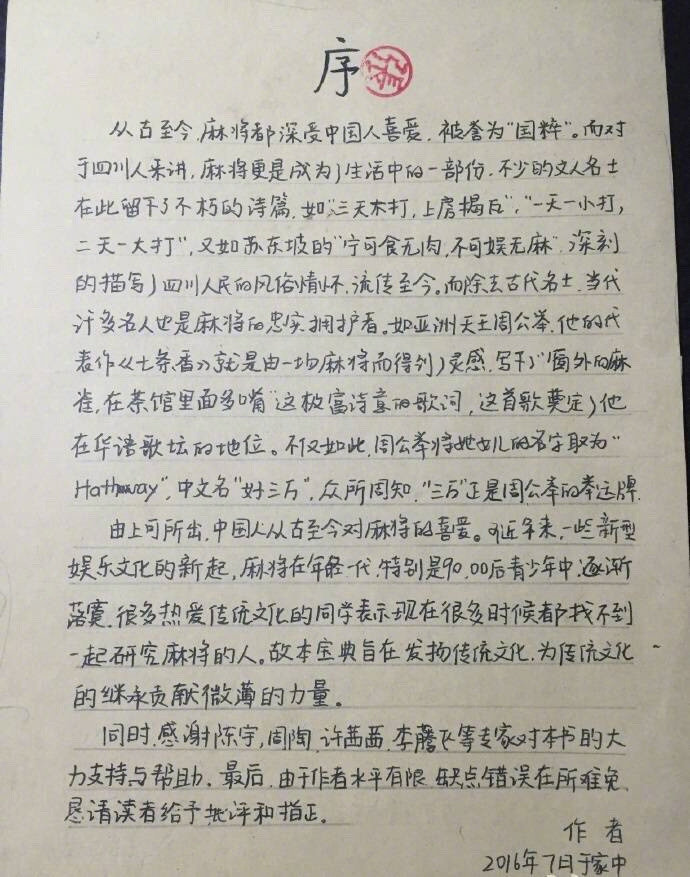 序
从古至今,麻将都深受中国人喜爱,被誉为“国粹”。而对
于四川人来讲,麻将更是成为了生活中的一部份,不少的文人名士
在此留下了不朽的诗篇,如“三天不打,上房揭瓦”,“一天一小打,
二天一大打”,又如苏东坡的“宁可食无肉,不可娱无麻”,深刻
的描写了四川人民的风俗情怀,流传至今。而除去古代名士,当代
许多名人也是麻将的忠实拥护者。如亚洲天王周公举,他的代
表作《七条香》就是由一场麻将而得到了灵感,写下了“窗外的麻
雀,在茶馆里面多嘴”这极富诗意的歌词,这首歌奠定了他
在华语歌坛的地位。不仅如此,周公举将她女儿的名字取为“
Hathaway”,中文名“好三万”,众所周知,“三万”正是周公举的幸运牌.
由上可所出,中国人从古至今对麻将的喜爱。可近年来,一些新型
娱乐文化的新起,麻将在年轻一代,特别是90,00后青少年中,逐渐
落寞,很多热爱传统文化的同学表示现在很多时候都找不到
一起研究麻将的人。故本宝典旨在发扬传统文化,为传统文化
的继承贡献微薄的力量。
同时,感谢陈宇,周陶,许茜茜,李腾飞等专家对本书的大
力支持与帮助。最后,由于作者水平有限,缺点错误在所难免,
恳请读者给予批评和指正。
作者
2016年7日于家中